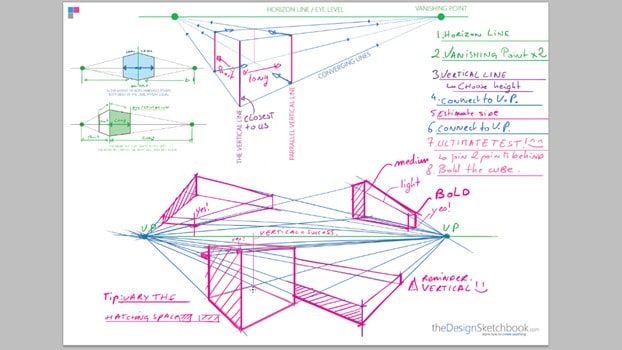 HORIZON LINE / EYE LEVEL
VANISHING POINT
short
long
CONVERGING LINES
THE VERTICAL LINE
closest
to us
PARRALEL VERTICAL LINE
1. Horizon Line
2. Vanishing Point x2
3. Vertical line
↳ Choose height
4. connect to V.P.
5 Estimate side
6. connect to V.P.
7. ULTIMATE TEST!
↳ join 2 points behind
8. Bold the cube.
medium
light
BOLD
yes!
yes!
V.P
VERTICAL = SUCCESS.
yes!
VP
Tip: VARY THE
HATCHING SPACING
REMINDER.
VERTICAL!!
theDesignSketchbook.com